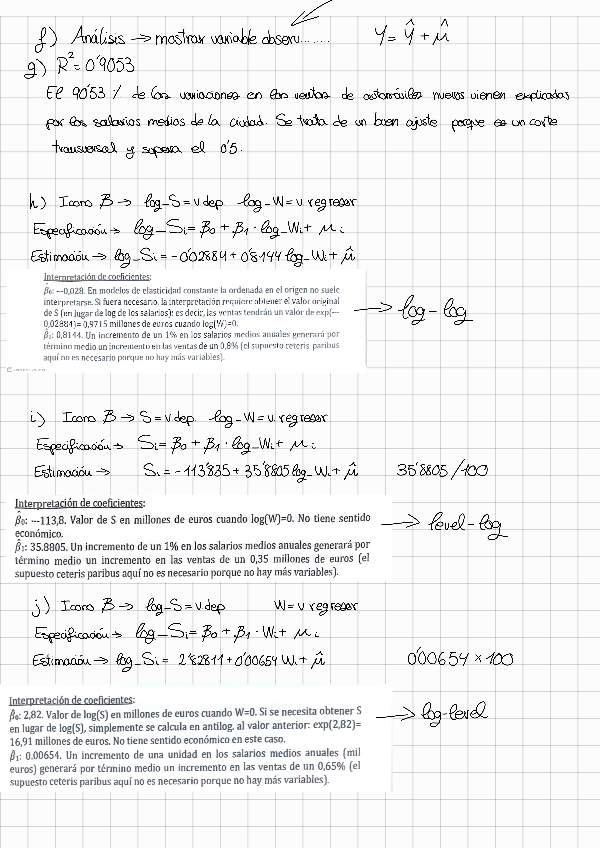 f) Análisis → mostrar variable observ....... Y = Ŷ + μ̂
g) R² = 0'9053
El 90'53 % de las variaciones en las ventas de automóviles nuevos vienen explicadas
por los salarios medios de la ciudad. Se trata de un buen ajuste porque es un corte
transversal y supera el 0'5.
h) Icono β → log_S = v dep. log_W = v regresor
Especificación → log_Si = β0 + β1 · log_Wi + μi
Estimación → log_Si = -0'02884 + 0'8144 log_Wi + μ̂
Interpretación de coeficientes:
β̂0: –-0,028. En modelos de elasticidad constante la ordenada en el origen no suele
interpretarse. Si fuera necesario, la interpretación requiere obtener el valor original
de S (en lugar de log de los salarios); es decir, las ventas tendrán un valor de exp(–-
0,02884)= 0,9715 millones de euros cuando log(W)=0.
β̂1: 0,8144. Un incremento de un 1% en los salarios medios anuales generará por
término medio un incremento en las ventas de un 0,8% (el supuesto ceteris paribus
aquí no es necesario porque no hay más variables).
→ log-log
i) Icono β → S = v dep. log_W = v. regresor
Especificación → Si = β0 + β1 · log_Wi + μi
Estimación → Si = -113'835 + 35'8805 log_Wi + μ̂ 35'8805/100
Interpretación de coeficientes:
β̂0: –-113,8. Valor de S en millones de euros cuando log(W)=0. No tiene sentido
económico.
β̂1: 35.8805. Un incremento de un 1% en los salarios medios anuales generará por
término medio un incremento en las ventas de un 0,35 millones de euros (el
supuesto ceteris paribus aquí no es necesario porque no hay más variables).
→ level-log
j) Icono β → log_S = v dep W = v regresor
Especificación → log_Si = β0 + β1 · Wi + μi
Estimación → log_Si = 2'82811 + 0'00654 Wi + μ̂ 0'00654 × 100
Interpretación de coeficientes:
β̂0: 2,82. Valor de log(S) en millones de euros cuando W=0. Si se necesita obtener S
en lugar de log(S), simplemente se calcula en antilog. al valor anterior: exp(2,82)=
16,91 millones de euros. No tiene sentido económico en este caso.
β̂1: 0.00654. Un incremento de una unidad en los salarios medios anuales (mil
euros) generará por término medio un incremento en las ventas de un 0,65% (el
supuesto ceteris paribus aquí no es necesario porque no hay más variables).
→ log-level